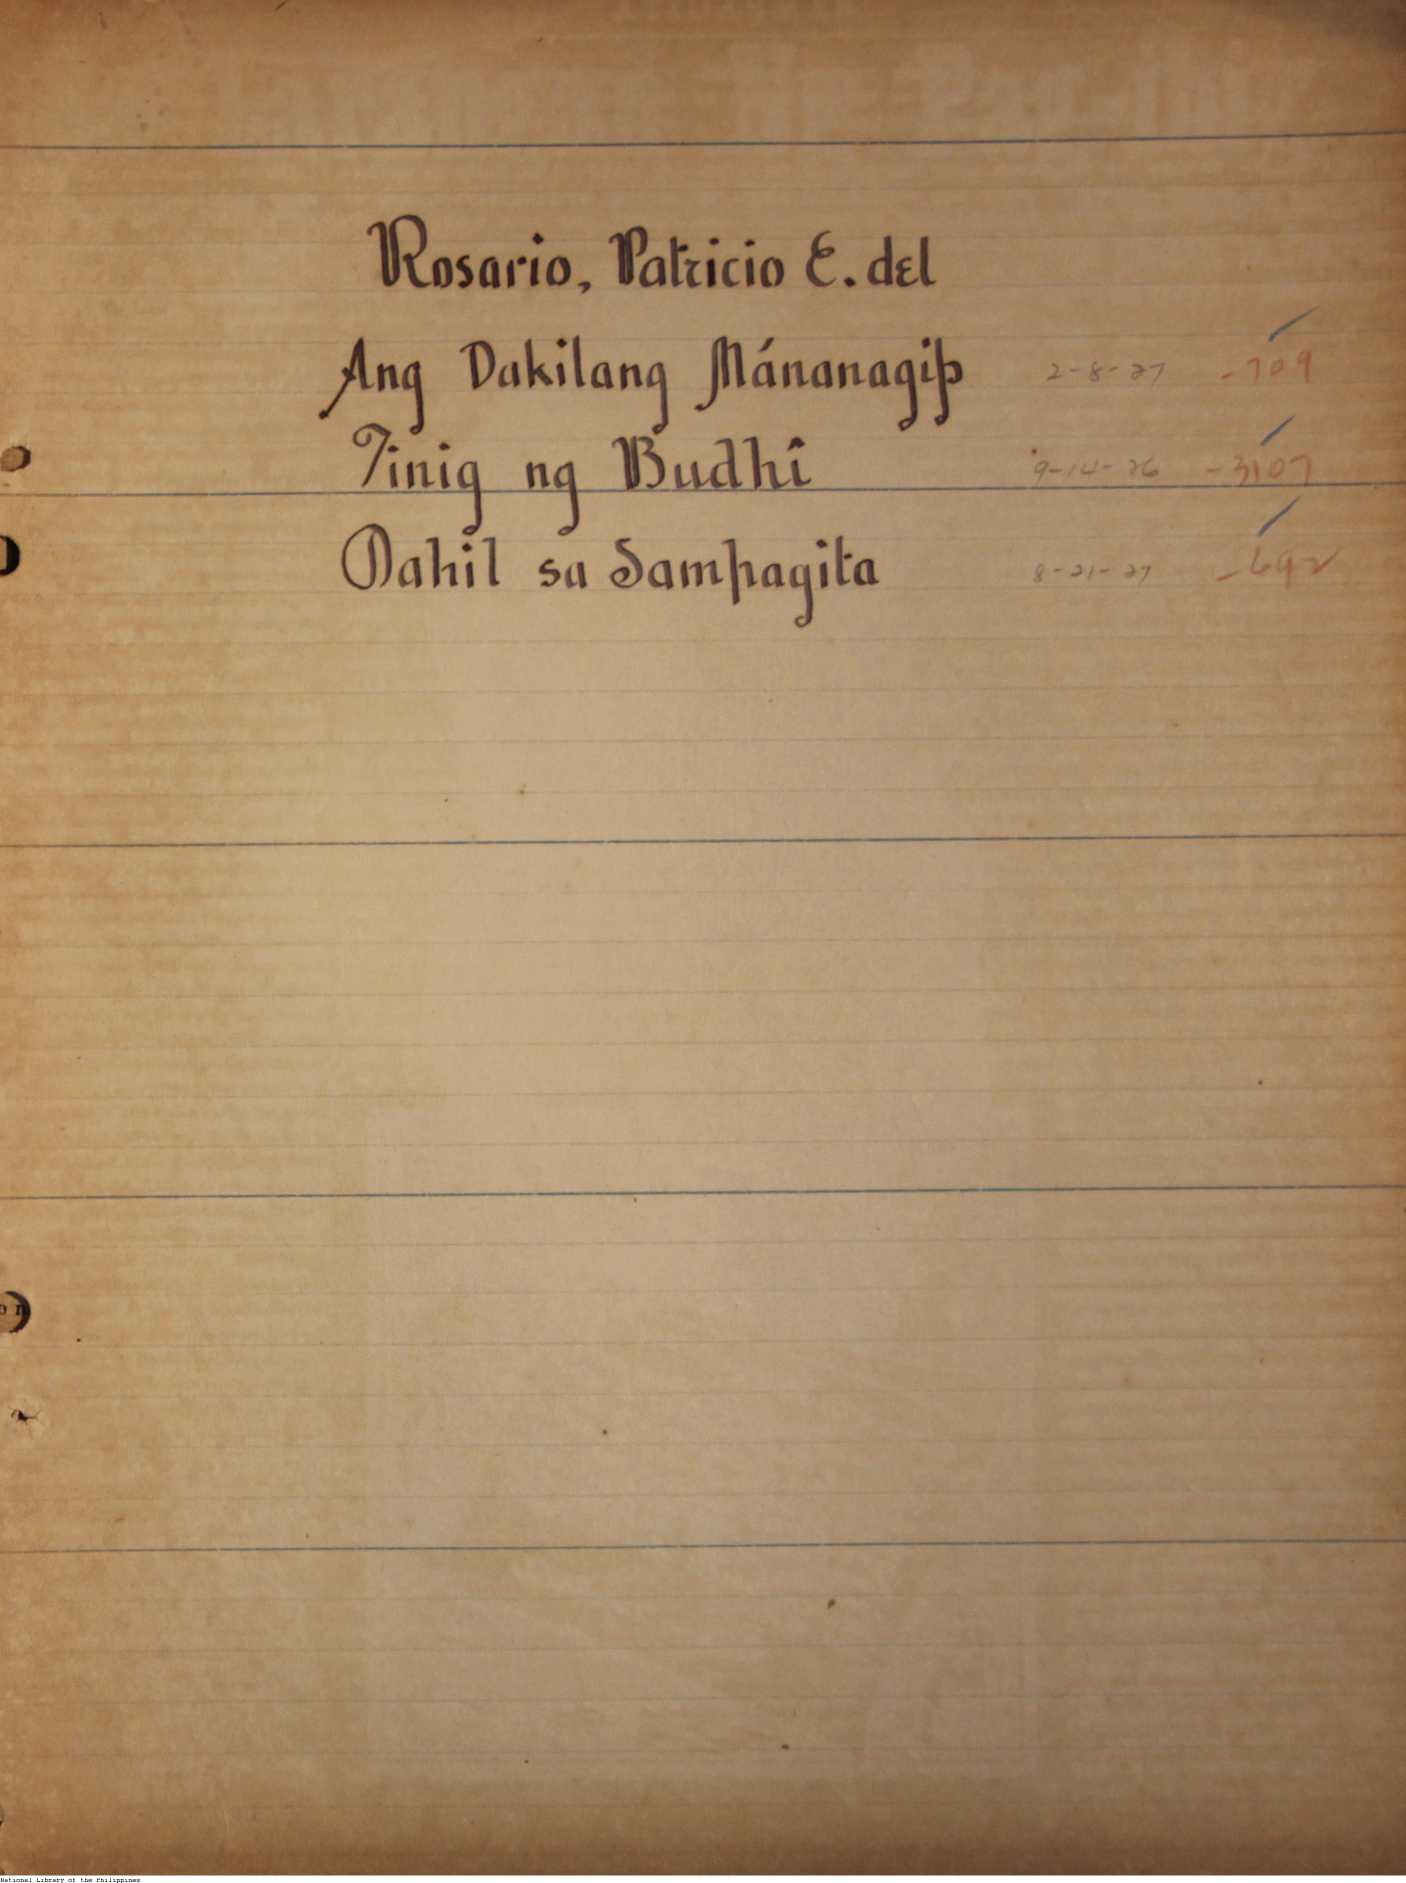 Rosario, Patricio E. del
Ang Dakilang Mánanagip 2-8-27 -709
Tinig ng Budhî 9-14-26 -3107
Dahil sa Sampagita 8-21-27 -692
on
National Library of the Philippines